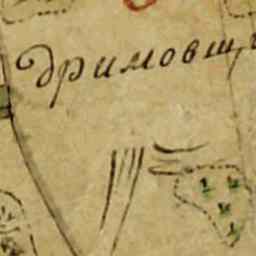 Дримовщ